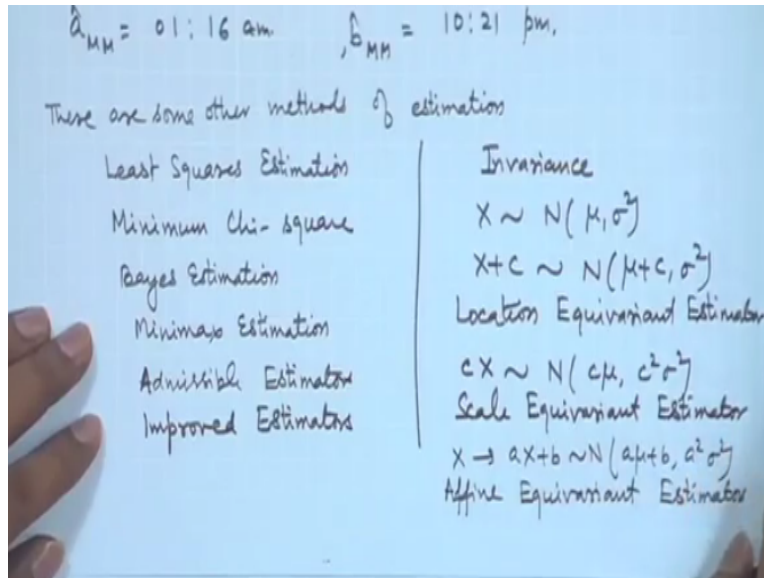 â_MM = 01:16 am. , b̂_MM = 10:21 pm.
There are some other methods of estimation
Least Squares Estimation
Minimum Chi-square
Bayes Estimation
Minimax Estimation
Admissible Estimators
Improved Estimators
Invariance
X ~ N(μ, σ²)
X+C ~ N(μ+c, σ²)
Location Equivariant Estimator
cX ~ N(cμ, c²σ²)
Scale Equivariant Estimator
X → aX+b ~ N(aμ+b, a²σ²)
Affine Equivariant Estimator